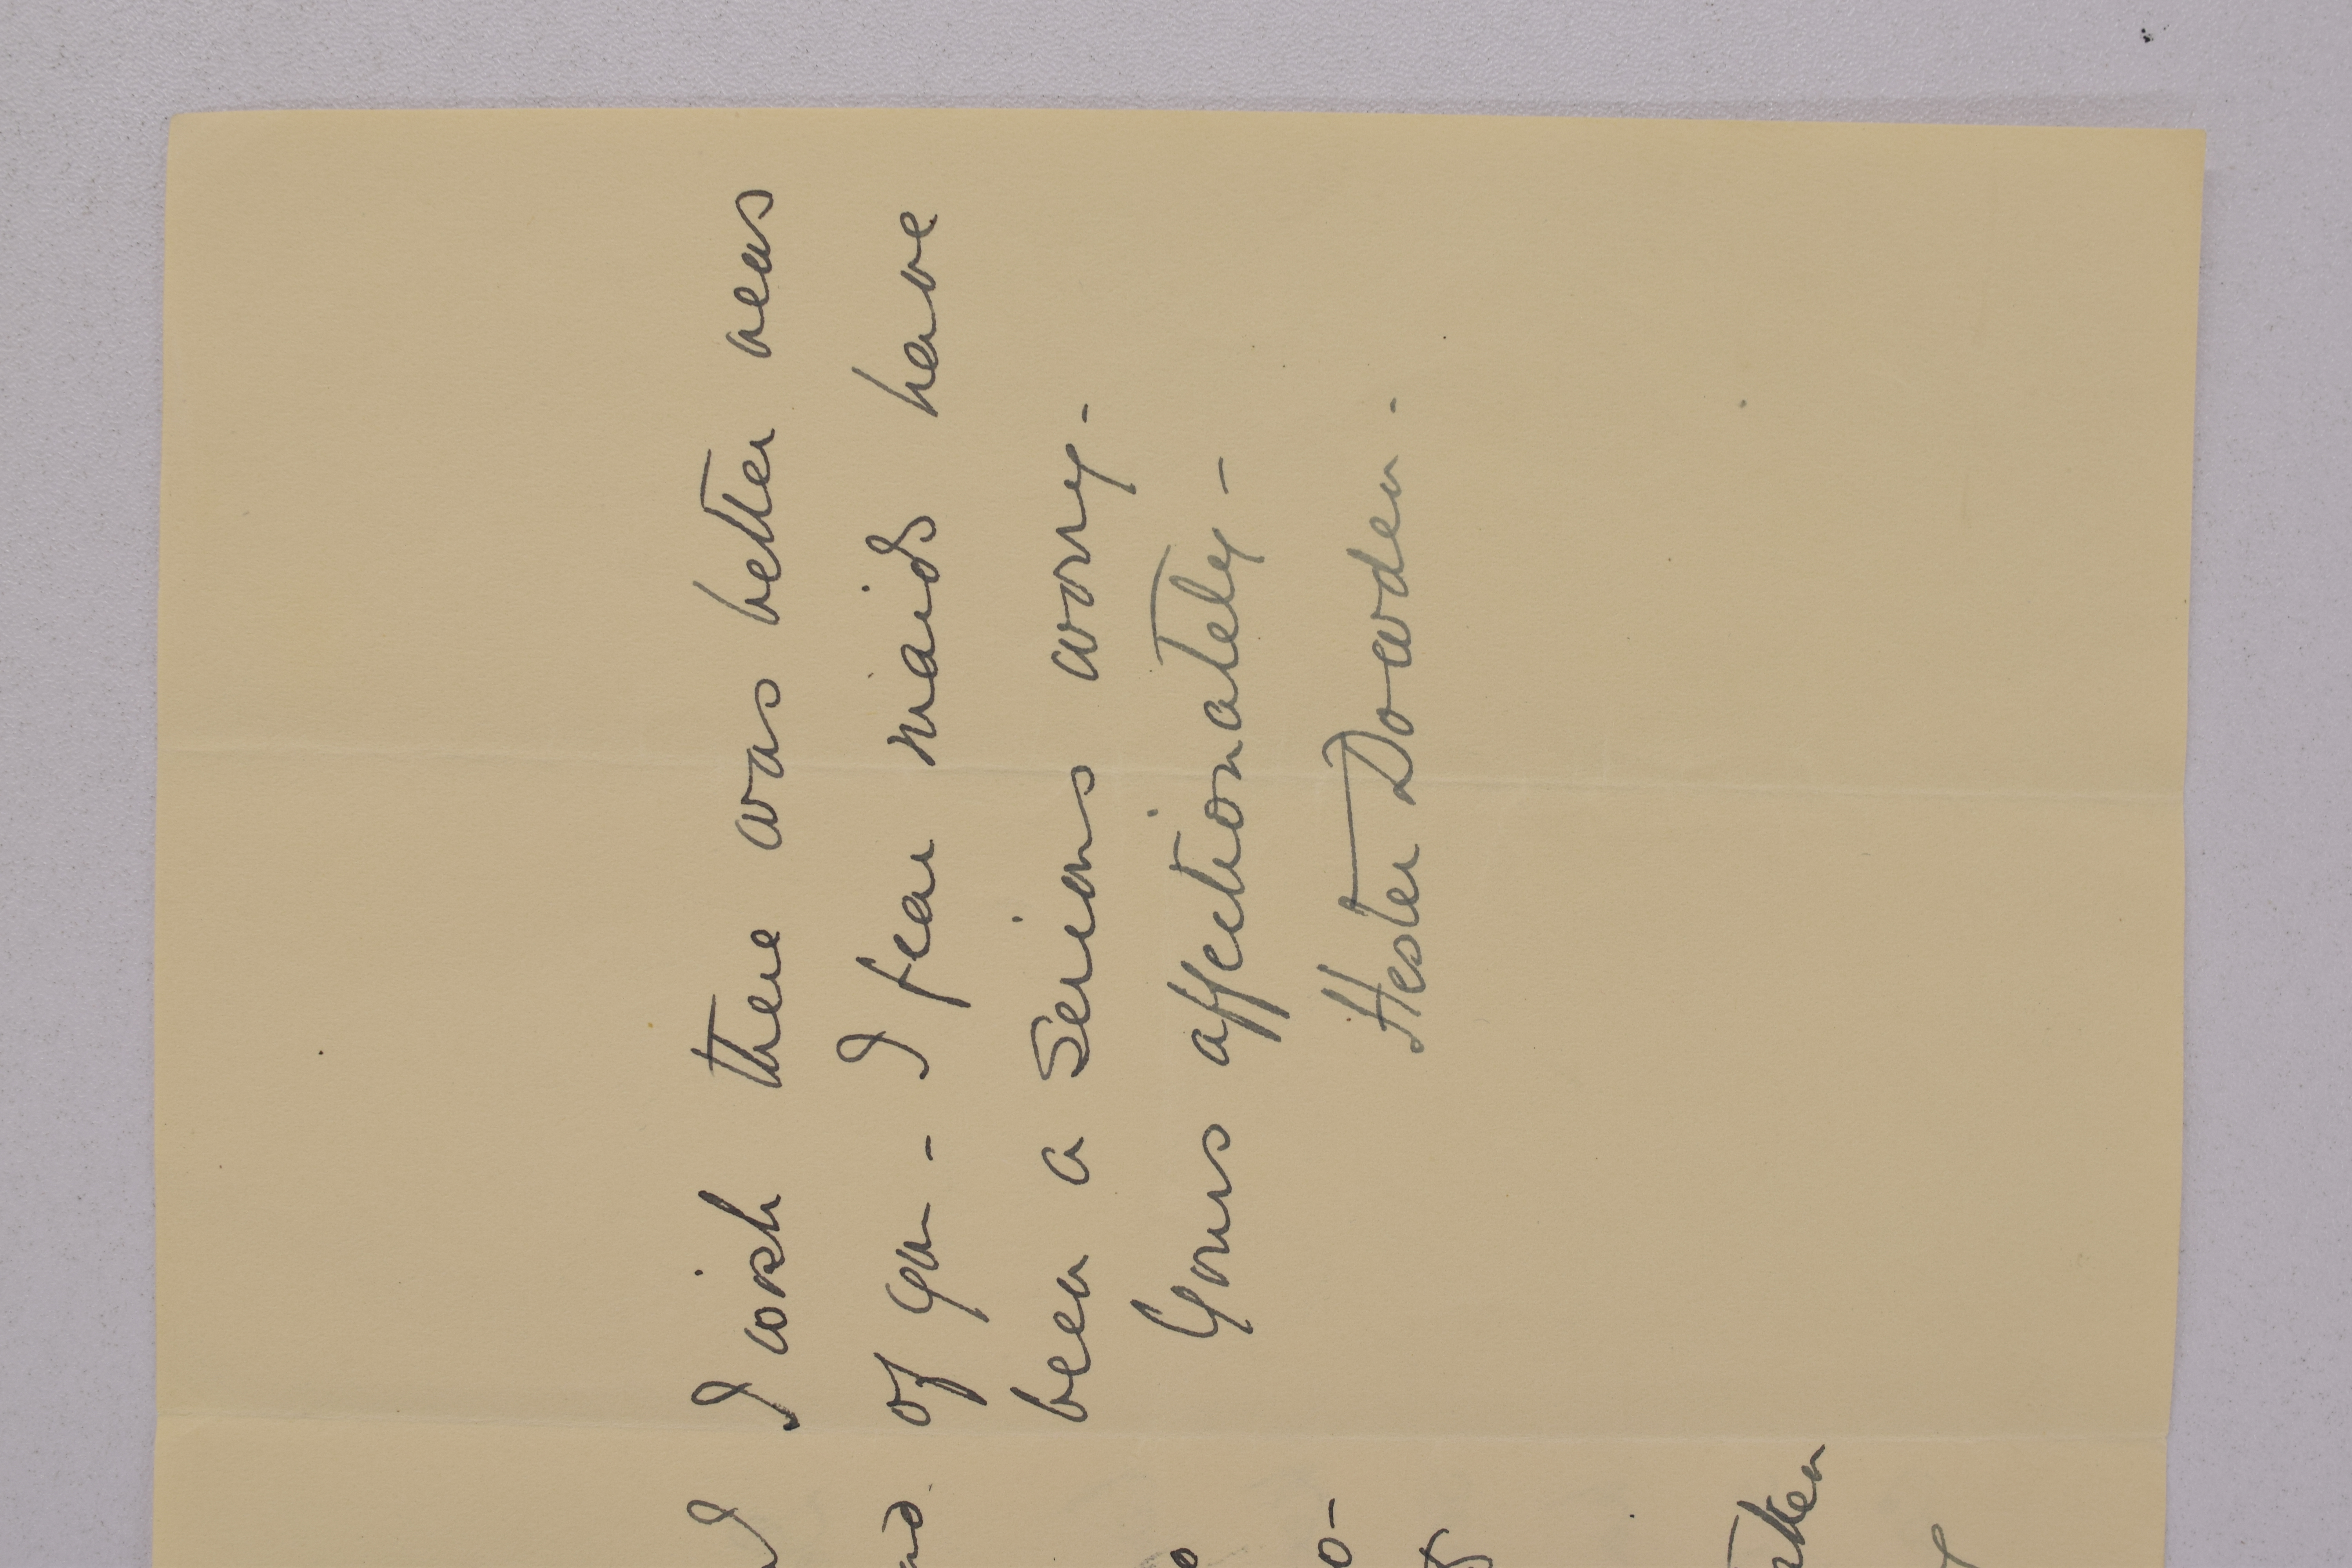 I wish there was better news
of you - I fear maids have
been a serious worry -
Yours affectionately -
Hester Dowden -